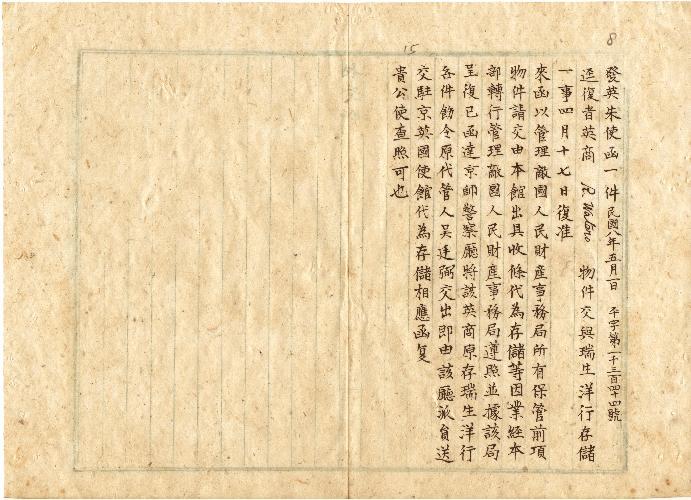 8
15
發英朱使函一件 民國八年五月一日 平字第一千三百四十四號
逕復者英商 物件交與瑞生洋行存儲
一事四月十七日復准
來函以管理敵國人民財產事務局所有保管前項
物件請交由本館出具收條代為存儲等因業經本
部轉行管理敵國人民財產事務局遵照並據該局
呈復已函達京師警察廳將該英商原存瑞生洋行
各件飭令原代管人吳廷弼交出即由該廳派員送
交駐京英國使館代為存儲相應函复
貴公使查照可也